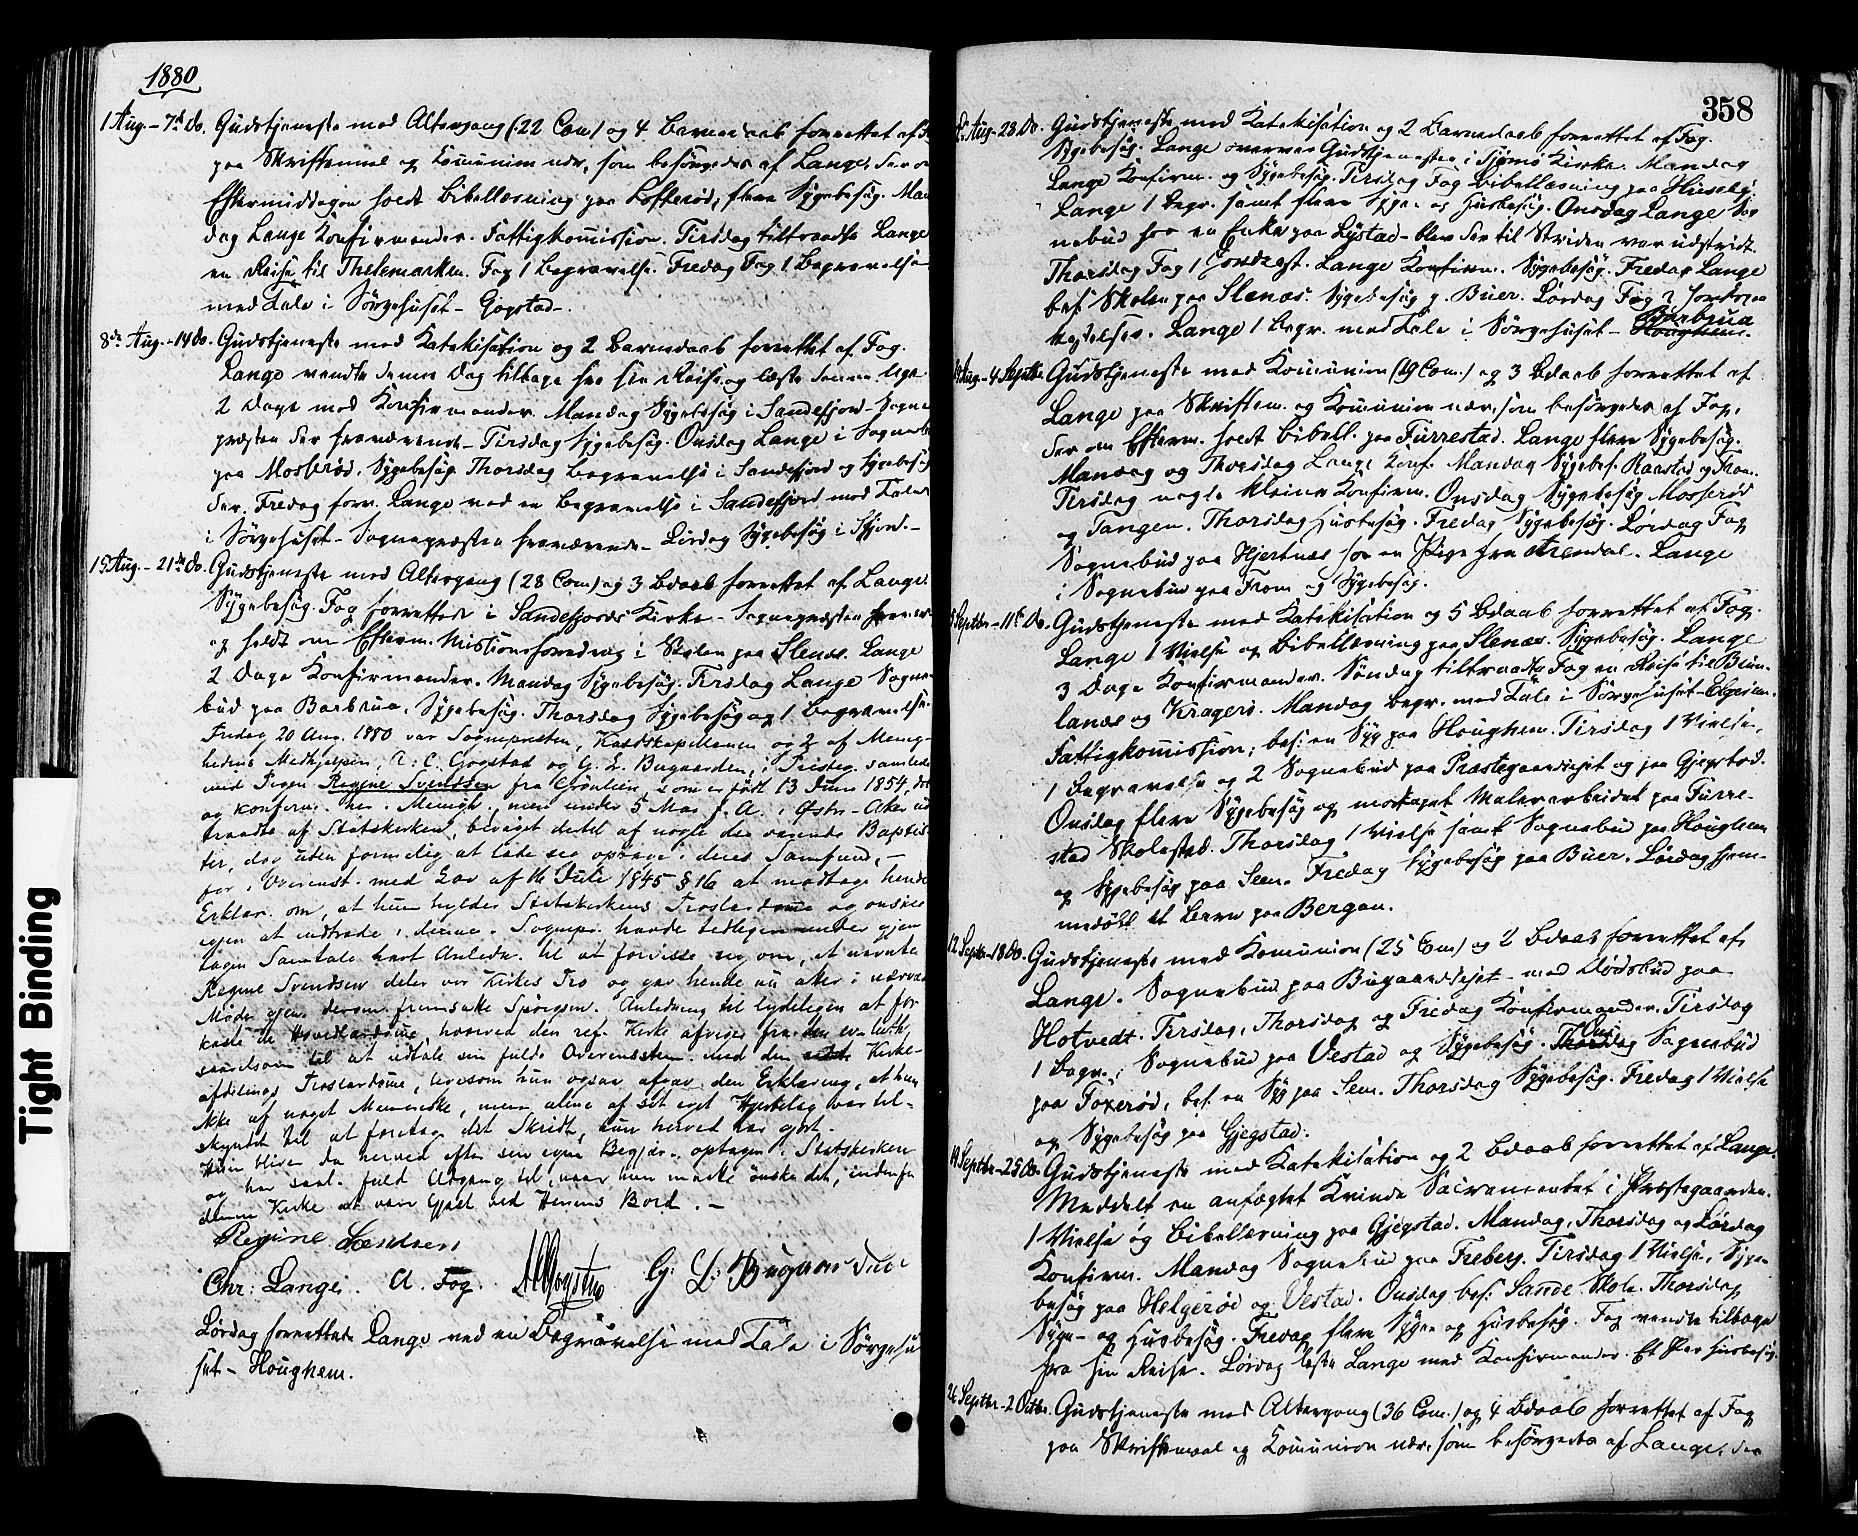 1880
1 Aug. - 7de Do. Gudstjeneste med Altergang (22 Com.) og 4 Barnedaab forrettet af
paa Skriftemaal og Kommunion nær, som besørgedes af Lange, der om
Eftermiddagen holdt Bibellæsning paa Lofterød, flere Sygebesøg. Man
dag Lange Konfirmander. Fattigkommission. Tirsdag tiltraadte Lange
en Reise til Thelemarken. Fog 1 Begravelse. Fredag Fog 1 Begravelse
med Tale i Sørgehuset - Gogstad.
8de Aug. - 14 Do. Gudstjeneste med Katekisation og 2 Barnedaab forrettet af Fog.
Lange vendte denne Dag tilbage fra sin Reise og læste denne Uge
2 Dage med Konfirmander. Mandag Sygebesøg i Sandefjord - Sogne
præsten der fraværende - Tirsdag Sygebesøg. Onsdag Lange i Sognebud
paa Mosserød. Sygebesøg. Thorsdag Begravelse i Sandefjord og Sygebesøg
der. Fredag forr. Lange ved en Begravelse i Sandefjord med Tale
i Sørgehuset - Sognepræsten fraværende - Lørdag Sygebesøg i Sfjord. -
15 Aug. - 21de Do. Gudstjeneste med Altergang (28 Com.) og 3 Bdaab forrettet af Lange.
Sygebesøg. Fog forrettede i Sandefjords Kirke - Sognepræsten fravær.
og holdt om Efterm. Missionsforedrag i Skolen paa Slenæs. Lange
2 Dage Konfirmander. Mandag Sygebesøg. Tirsdag Lange Sogne-
bud paa Barbrua. Sygebesøg. Thorsdag Sygebesøg og 1 Begravelse.
Fredag 20 Aug. 1880 var Sognepresten, Residskapellanen og 2 af Menig-
hedens Medhjelpere, A. C. Gogstad og G. L. Bugaarden, i Presteg. samlede
med Pigen Regine Svendsen fra Grönlien, som er født 13 Juni 1854, døbt
og konfirm. her i Menigh., men under 5 Mai f. A. i Østre-Aker ud
traadte af Statskirken, bevæget dertil af nogle der værende Baptis
ter, dog uden formelig at lade sig optage i deres Samfund, -
for i Overenst. med Lov af 16 Juli 1845 § 16 at modtage hende
Erklær. om, at hun hylder Statskirkens Troslærdomme og ønsker
igjen at indtræde i denne. Sognepr. havde tidligere under gjen
tagen Samtale havt Anledn. til at forvisse sig om, at nævnte
Regine Svendsen deler vor Kirkes Tro og gav hende nu atter i nærvær.
Møde gjen. derom fremsatte Spörgsm. Anledning til tydeligen at for
kaste de Hovedlærdomme, hvorved den ref. Kirke afviger fra den ev-luth.
saavelsom til at udtale sin fulde Overensstem. med den sidste Kirke-
afdelings Troslærdomme, ligesom hun ogsaa afgav den Erklæring, at hun
ikke af noget Menneske, men alene af sit eget Hjertelag var til-
skyndet til at foretage det Skridt, hun herved har gjort.
Hun bliver da herved efter sin egen Begjær. optagen i Statskirken
og har saal. fuld Adgang til, naar hun maatte ønske det, indenfor
denne Kirke at være Gjest ved Herrens Bord. -
Regine Svendsen
Chr: Lange. A. Fog. A C Gogstad G. L. Bugaarden
Lørdag forrettede Lange ved en Begravelse med Tale i Sørgehu
set - Houghem.
358
Aug. - 28 Do. Gudstjeneste med Katekisation og 2 Barnedaab forrettet af Fog.
Sygebesøg. Lange overvar Gudstjenesten i Tjømø Kirke. Mandag
Lange Konfirm. og Sygebesøg. Tirsdag Fog Bibellæsning paa Huseby.
Lange 1 Begr. samt flere Syge- og Husbesøg. Onsdag Lange Sog
nebud hos en Enke paa Lystad - blev der til Striden var udstridt.
Thorsdag Fog 1 Jordfæst. Lange Konfirm. Sygebesøg. Fredag Lange
bes. Skolen paa Slenæs. Sygebesøg p. Buer. Lørdag Fog 2 Jordspaa
kastelser. Lange 1 Begr. med Tale i Sørgehuset - Houghem. Barbrua
Aug. - 4 Septbr. Gudstjeneste med Kommunion (29 Com.) og 3 Bdaab forrettet af
Lange paa Skriftem. og Kommunion nær, som besørgedes af Fog,
der om Efterm. holdt Bibell. paa Furrestad. Lange flere Sygebesøg.
Mandag og Thorsdag Lange Konf. Mandag Sygebes. Raastad og Fron.
Tirsdag nogle kleine Konfirm. Onsdag Sygebesøg Mosserød
og Tangen. Thorsdag Husbesøg. Fredag Sygebesøg. Lørdag Fog
Sognebud paa Hjertnæs for en Pige fra Arendal. Lange
i Sognebud paa From og Sygebesøg.
5 Septbr. - 11te Do. Gudstjeneste med Katekisation og 5 Bdaab forrettet af Fog.
Lange 1 Vielse og Bibellæsning paa Slenæs. Sygebesøg. Lange
3 Dage Konfirmander. Søndag tiltraadte Fog en Reise til Brun-
lanæs og Kragerø. Mandag Begr. med Tale i Sørgehuset - Elgesem.
Fattigkommission; bes: en Syg paa Houghem. Tirsdag 1 Vielse,
1 Begravelse og 2 Sognebud paa Præstegaardseiet og paa Gjegstad.
Onsdag flere Sygebesøg og modtaget Malerarbeidet paa Furre-
stad Skolested. Thorsdag 1 Vielse samt Sognebud paa Houghem
og Sygebesøg paa Sem. Fredag Sygebesøg paa Buer. Lørdag hjem-
medøbt et Barn paa Bergan.
12 Septbr. - 18 Do. Gudstjeneste med Kommunion (25 Com) og 2 Bdaab forrettet af
Lange. Sognebud paa Bugaardseiet - med Dødsbud paa
Hotvedt. Tirsdag, Thorsdag og Fredag Konfirmander. Tirsdag
1 Begr., Sognebud paa Vestad og Sygebesøg. Thorsdag Ons Sognebud
paa Foxerød, bes. en Syg paa Sem. Thorsdag Sygebesøg. Fredag 1 Vielse
og Sygebesøg paa Gjegstad.
19 Septbr. - 25 Do. Gudstjeneste med Katekisation og 2 Bdaab forrettet af Lange.
Meddelt en anfægtet Kvinde Sacramentet i Præstegaarden.
1 Vielse og Bibellæsning paa Gjegstad. Mandag, Thorsdag og Lørdag
Konfirm. Mandag Sognebud paa Freberg. Tirsdag 1 Vielse, Syge-
besøg paa Helgerød og Vestad. Onsdag bes: Sande Skole. Thorsdag
Syge- og Husbesøg. Fredag flere Syge- og Husbesøg. Fog vendte tilbage
fra sin Reise. Lørdag læste Lange med Konfirmander. Et Par Husbesøg.
26 Septbr. - 2 Octbr. Gudstjeneste med Altergang (36 Com.) og 4 Bdaab forrettet af Fog
paa Skriftemaal og Kommunion nær, som besørgedes af Lange, der
Tight Binding